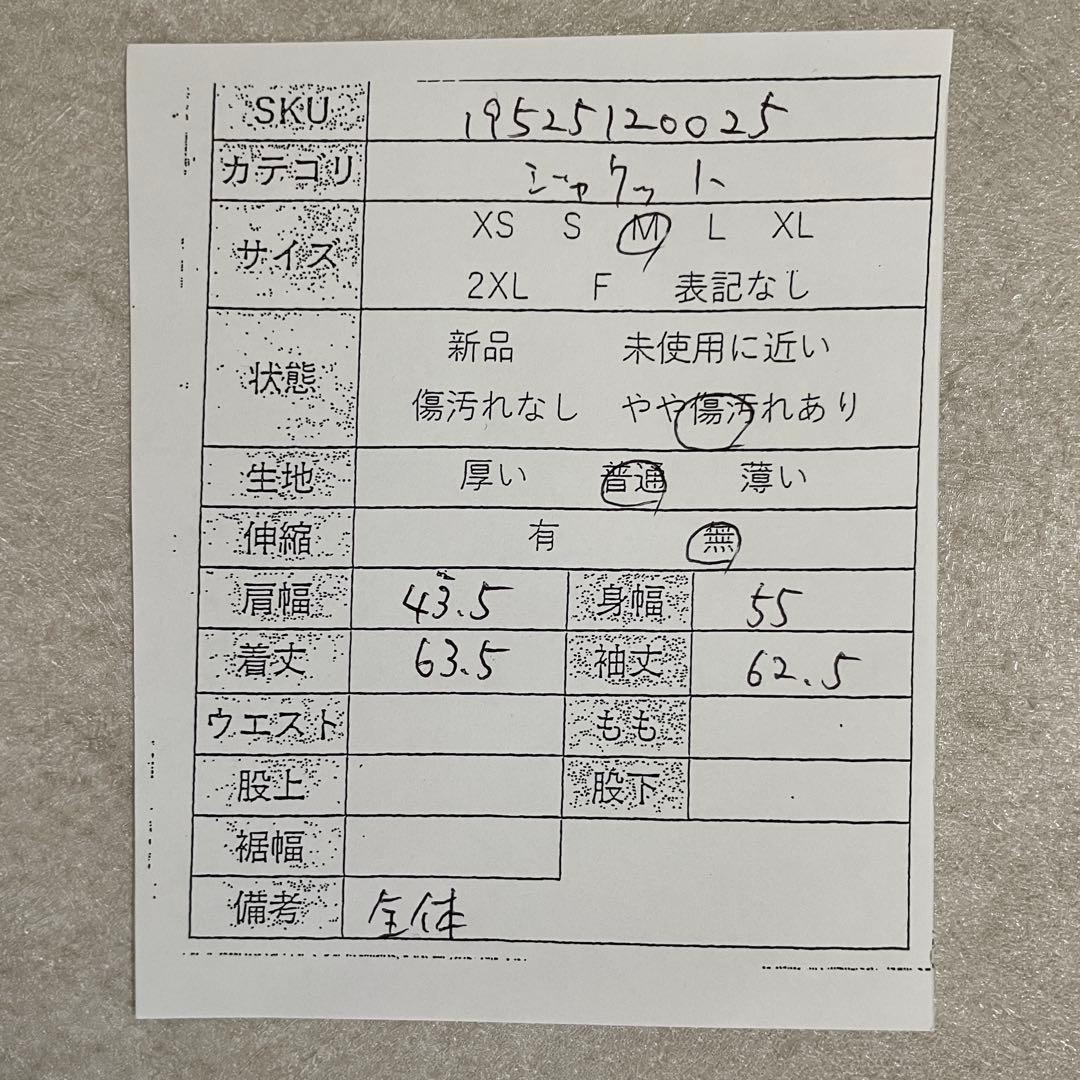 SKU 19525120025
カテゴリ ジャケット
サイズ XS S M L XL
2XL F 表記なし
状態 新品 未使用に近い
傷汚れなし やや傷汚れあり
生地 厚い 普通 薄い
伸縮 有 無
肩幅 43.5 身幅 55
着丈 63.5 袖丈 62.5
ウエスト もも
股上 股下
裾幅
備考 全体